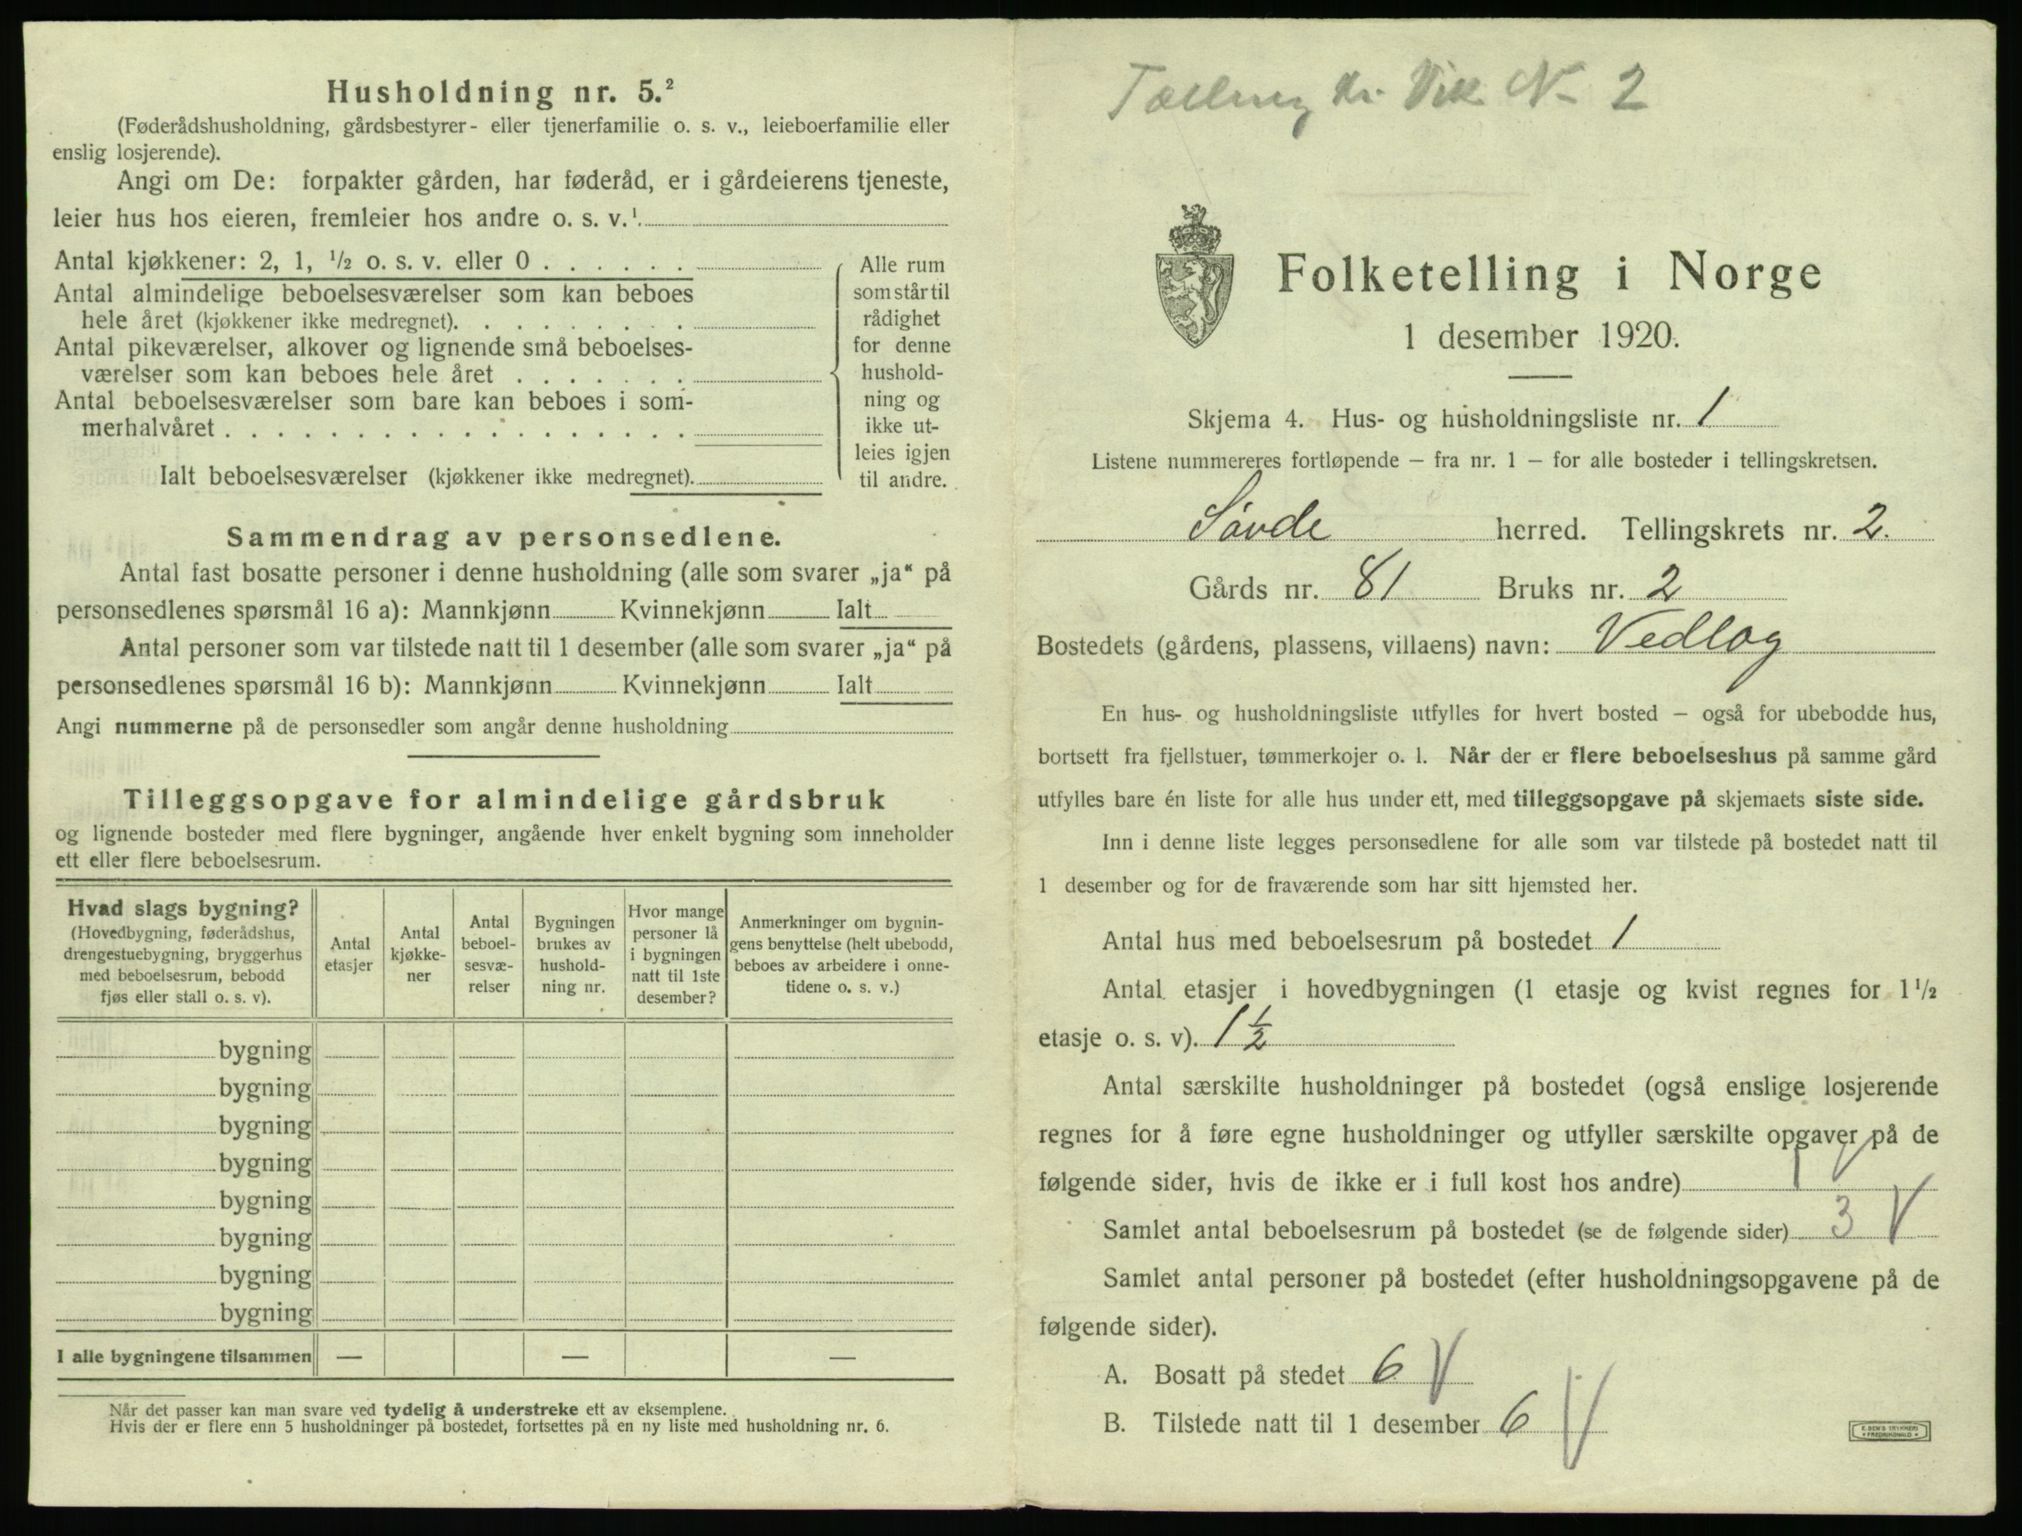 Husholdning nr. 5.²
(Føderådshusholdning, gårdsbestyrer- eller tjenerfamilie o. s. v., leieboerfamilie eller
enslig losjerende).
Angi om De: forpakter gården, har føderåd, er i gårdeierens tjeneste,
leier hus hos eieren, fremleier hos andre o. s. v.¹
Antal kjøkkener: 2, 1, ½ o. s. v. eller 0 . . . . . .
Antal almindelige beboelsesværelser som kan beboes
hele året (kjøkkener ikke medregnet). . . . . . . . .
Antal pikeværelser, alkover og lignende små beboelses-
værelser som kan beboes hele året . . . . . . .
Antal beboelsesværelser som bare kan beboes i som-
merhalvåret . . . . . . . . . . . . . . . . . .
Ialt beboelsesværelser (kjøkkener ikke medregnet).
Alle rum
som står til
rådighet
for denne
hushold-
ning og
ikke ut-
leies igjen
til andre.
Sammendrag av personsedlene.
Antal fast bosatte personer i denne husholdning (alle som svarer „ja“ på
personsedlenes spørsmål 16 a): Mannkjønn Kvinnekjønn Ialt
Antal personer som var tilstede natt til 1 desember (alle som svarer „ja“ på
personsedlenes spørsmål 16 b): Mannkjønn Kvinnekjønn Ialt
Angi nummerne på de personsedler som angår denne husholdning
Tilleggsopgave for almindelige gårdsbruk
og lignende bosteder med flere bygninger, angående hver enkelt bygning som inneholder
ett eller flere beboelsesrum.
Hvad slags bygning?
(Hovedbygning, føderådshus,
drengestuebygning, bryggerhus
med beboelsesrum, bebodd
fjøs eller stall o. s. v).
Antal
etasjer
Antal
kjøkke-
ner
Antal
beboel-
sesvæ-
relser
Bygningen
brukes av
hushold-
ning nr.
Hvor mange
personer lå
i bygningen
natt til 1ste
desember?
Anmerkninger om bygnin-
gens benyttelse (helt ubebodd,
beboes av arbeidere i onne-
tidene o. s. v.)
bygning
bygning
bygning
bygning
bygning
bygning
bygning
bygning
I alle bygningene tilsammen — — —
Når det passer kan man svare ved tydelig å understreke ett av eksemplene.
Hvis der er flere enn 5 husholdninger på bostedet, fortsettes på en ny liste med husholdning nr. 6.
Vik N- 2
Folketelling i Norge
1 desember 1920.
Skjema 4. Hus- og husholdningsliste nr. 1
Listene nummereres fortløpende — fra nr. 1 — for alle bosteder i tellingskretsen.
Søvde herred. Tellingskrets nr. 2.
Gårds nr. 81 Bruks nr. 2
Bostedets (gårdens, plassens, villaens) navn: Vedlog
En hus- og husholdningsliste utfylles for hvert bosted — også for ubebodde hus,
bortsett fra fjellstuer, tømmerkojer o. l. Når der er flere beboelseshus på samme gård
utfylles bare én liste for alle hus under ett, med tilleggsopgave på skjemaets siste side.
Inn i denne liste legges personsedlene for alle som var tilstede på bostedet natt til
1 desember og for de fraværende som har sitt hjemsted her.
Antal hus med beboelsesrum på bostedet 1
Antal etasjer i hovedbygningen (1 etasje og kvist regnes for 1½
etasje o. s. v). 1½
Antal særskilte husholdninger på bostedet (også enslige losjerende
regnes for å føre egne husholdninger og utfyller særskilte opgaver på de
følgende sider, hvis de ikke er i full kost hos andre) 1
Samlet antal beboelsesrum på bostedet (se de følgende sider) 3
Samlet antal personer på bostedet (efter husholdningsopgavene på de
følgende sider).
A. Bosatt på stedet 6
B. Tilstede natt til 1 desember 6